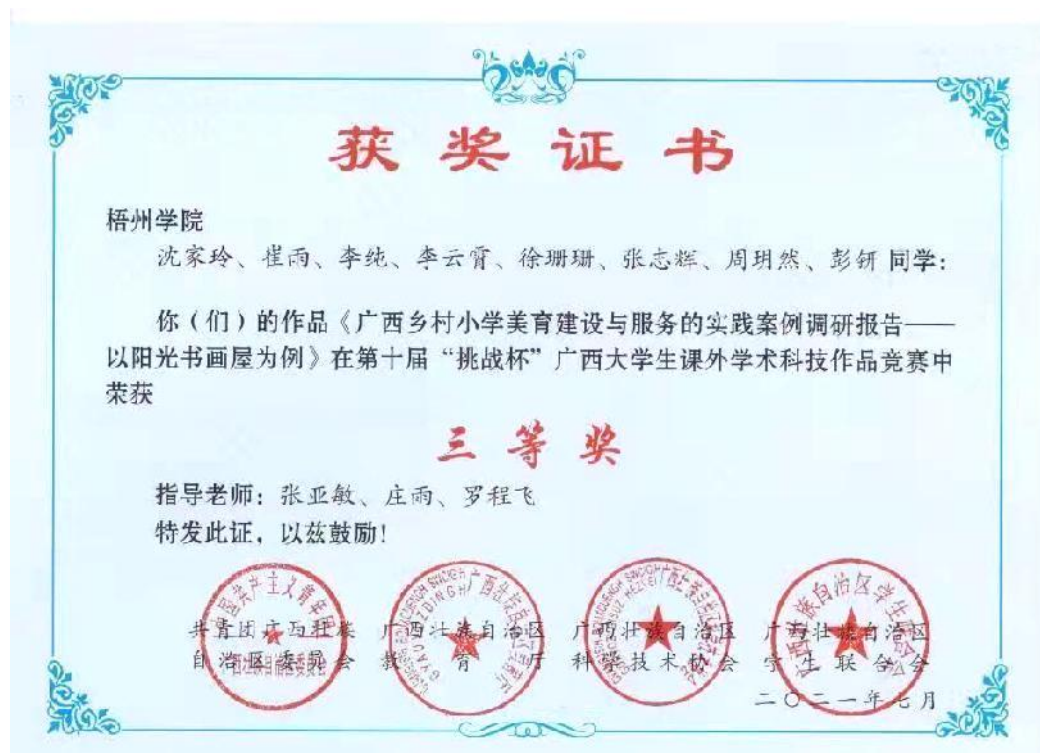 获奖证书
梧州学院
沈家玲、崔雨、李纯、李云霄、徐珊珊、张志辉、周玥然、彭钘 同学：
你（们）的作品《广西乡村小学美育建设与服务的实践案例调研报告——
以阳光书画屋为例》在第十届“挑战杯”广西大学生课外学术科技作品竞赛中
荣获
三等奖
指导老师：张亚敏、庄雨、罗程飞
特发此证，以兹鼓励！
共青团广西壮族 广西壮族自治区 广西壮族自治区 广西壮族自治区
自治区委员会 教育厅 科学技术协会 学生联合会
二〇二一年七月